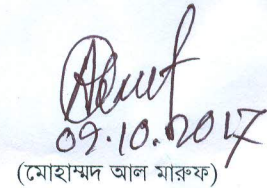 09.10.2017
(মোহাম্মদ আল মারুফ)